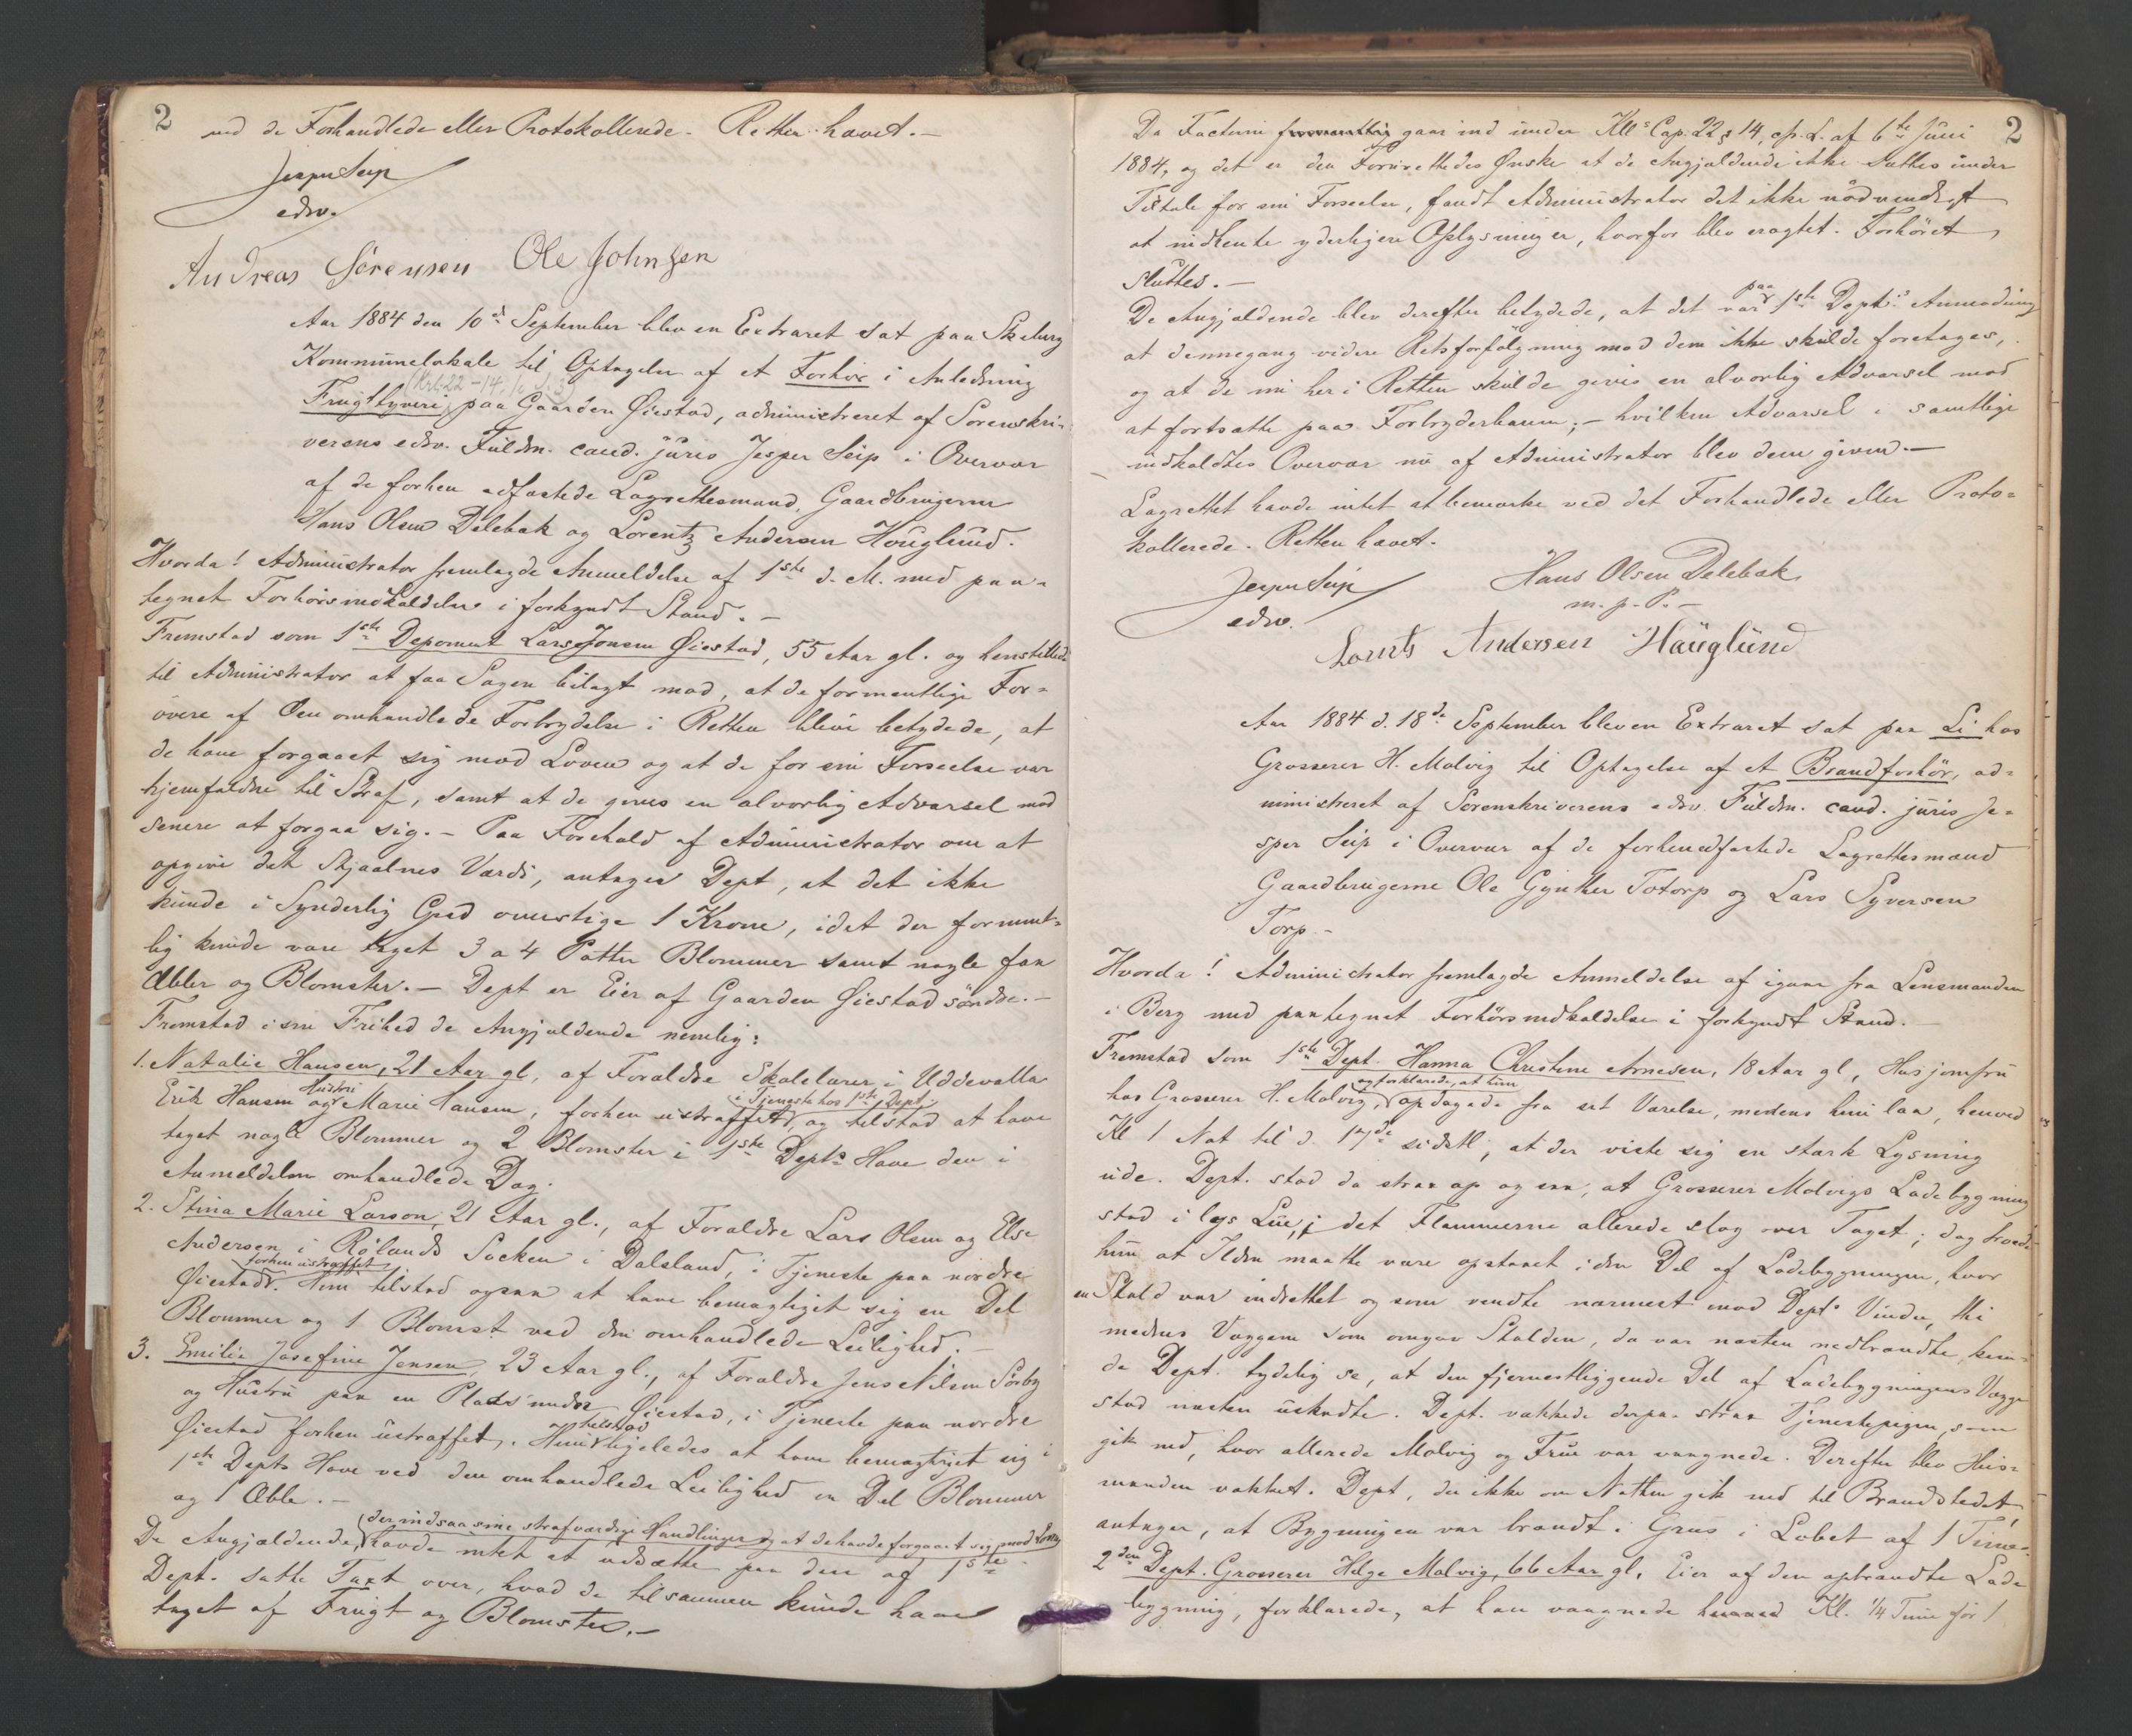 2
ved de Forhandlede eller Protokollerede. Retten hævet. —
Jesper Seip
edsv.
Andreas Sørensen Ole Johnsen
Aar 1884 den 10de September blev en Extraret sat paa Skeberg
Kommunelokale til Optagelse af et Forhør i Anledning
(Krl. 22 - 14,
Frugttyveri paa Gaarden Øiestad, administreret af Sorenskri-
verens edsv. Fuldm. cand. juris Jesper Seip i Overvær
af de forhen edfæstede Lagrettesmænd, Gaardbrugerne
Hans Olsen Delebæk og Lorentz Andersen Houglund.
Hvorda! Administrator fremlagde Anmeldelse af 1ste d. M. med paa-
tegnet Forhørsindkaldelse i forkyndt Stand. —
Fremstod som 1ste Deponent Lars Jonsen Øiestad, 55 Aar gl. og henstillede
til Administrator at faa Sagen bilagt mod, at de formentlige For-
øvere af den omhandlede Forbrydelse i Retten bleve betydede, at
de have forgaaet sig mod Loven og at de for sin Forseelse var
hjemfaldne til Straf, samt at de gives en alvorlig Advarsel mod
senere at forgaa sig. — Paa Forehold af Administrator om at
opgive det Stjaalnes Værdi, antager Dept, at det ikke
kunde i synderlig Grad overstige 1 Krone, idet der forment-
lig kunde være taget 3 a 4 Potter Blommer samt nogle faa
Æbler og Blomster. — Dept er Eier af Gaarden Øiestad søndre. —
Fremstod i sin Frihed de Angjældende nemlig:
1. Natalie Hansen, 21 Aar gl., af Forældre Skolelærer i Uddevalla
Erik Hansen og Hustru Marie Hansen, forhen ustraffet, i Tjeneste hos 1ste Dept. og tilstod at have
taget nogle Blommer og 2 Blomster i 1ste Depts Have den i
Anmeldelsen omhandlede Dag.
2. Stina Marie Larson, 21 Aar gl., af Forældre Lars Olsen og Else
Andersen i Rølands Socken i Dalsland, i Tjeneste paa nordre
Øiestad, forhen ustraffet. Hun tilstod ogsaa at have bemægtiget sig en Del
Blommer og 1 Blomst ved den omhandlede Leilighed. —
3. Emilie Josefine Jensen, 23 Aar gl., af Forældre Jens Nilsen Sørby
og Hustru paa en Plads under Øiestad, i Tjeneste paa nordre
Øiestad forhen ustraffet. Hun tilstod ligeledes at have bemægtiget sig i
1ste Depts Have ved den omhandlede Leilighed en Del Blommer
og 1 Æble. —
De Angjældende, der indsaa sine strafværdige Handlinger og at de havde forgaaet sig mod Loven
havde intet at udsætte paa den af 1ste
Dept. satte Taxt over, hvad de tilsammen kunde have
taget af Frugt og Blomster. —
2
Da Factum formentlig gaar ind under Kll's Cap. 22 § 14, cfr. L. af 6te Juni
1884, og det er den Forurettedes Ønske at de Angjældende ikke sættes under
Tiltale for sin Forseelse, fandt Administrator det ikke nødvendigt
at indhente yderligere Oplysninger, hvorfor blev eragtet. Forhøret
sluttes. —
De Angjældende blev derefter betydede, at det var paa 1ste Dept's Anmodning
at dennegang videre Retsforfølgning mod dem ikke skulde foretages,
og at de nu her i Retten skulde gives en alvorlig Advarsel mod
at fortsætte paa Forbryderbanen; — hvilken Advarsel i samtlige
indkaldtes Overvær nu af Administrator blev dem given. —
Lagrettet havde intet at bemærke ved det Forhandlede eller Proto-
kollerede. Retten hævet.
Jesper Seip
edsv.
Hans Olsen Delebæk
m. p. P. —
Lornts Andersen Häuglund
Aar 1884 d. 18de September blev en Extraret sat paa Li hos
Grosserer H. Melvig til Optagelse af et Brandforhør, ad-
ministreret af Sorenskriverens edsv. Fuldm. cand. juris Je-
sper Seip i Overvær af de forhen edfæstede Lagrettesmænd
Gaardbrugerne Ole Gynther Totorp og Lars Syversen
Torp —
Hvorda! Administrator fremlagde Anmeldelse af igaar fra Lensmanden
i Berg med paategnet Forhørsindkaldelse i forkyndt Stand. —
Fremstod som 1ste Dept. Hanna Christine Arnesen, 18 Aar gl, Husjomfru
hos Grosserer H. Melvig, og forklarede, at hun opdagede fra sit Værelse, medens hun laa, henved
Kl 1 Nat til d. 17de sidstl., at der viste sig en stærk Lysning
ude. Dept. stod da strax op og saa, at Grosserer Melvigs Ladebygning
stod i lys Lue, i det Flammerne allerede slog over Taget; dog troede
hun, at Ilden maatte være opstaaet i den Del af Ladebygningen, hvor
en Stald var indrettet og som vendte nærmest mod Dept's Vindu, thi
medens Væggene som omgav Stalden, da var næsten nedbrændte, kun-
de Dept. tydelig se, at den fjernestliggende Del af Ladebygningens Vægge
stod næsten uskadte. Dept. vækkede derpaa strax Tjenestepigen, som
gik ned, hvor allerede Melvig og Frue var vaagnede. Derefter blev Hus-
manden vækket. Dept, der ikke om Natten gik ned til Brandstedet
antager, at Bygningen var brændt i Grus i Løbet af 1 Time.
2den Dept. Grosserer Helge Melvig, 66 Aar gl, Eier af den opbrændte Lade
bygning, forklarede, at han vaagnede henved Kl. 1/4 Time før 1